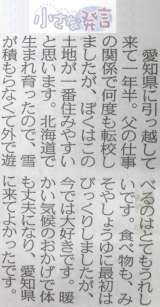 発言
愛知県に引っ越して
来て一年半。父の仕事
の関係で何度も転校し
ましたが、ぼくはこの
土地が一番住みやすい
と思います。北海道で
生まれ育ったので、雪
が積もらなくて外で遊
べるのはとてもうれし
いです。食べ物も、み
そやしょうゆに最初は
びっくりしましたが、
今では大好きです。暖
かい気候のおかげで体
も丈夫になり、愛知県
に来てよかったです。